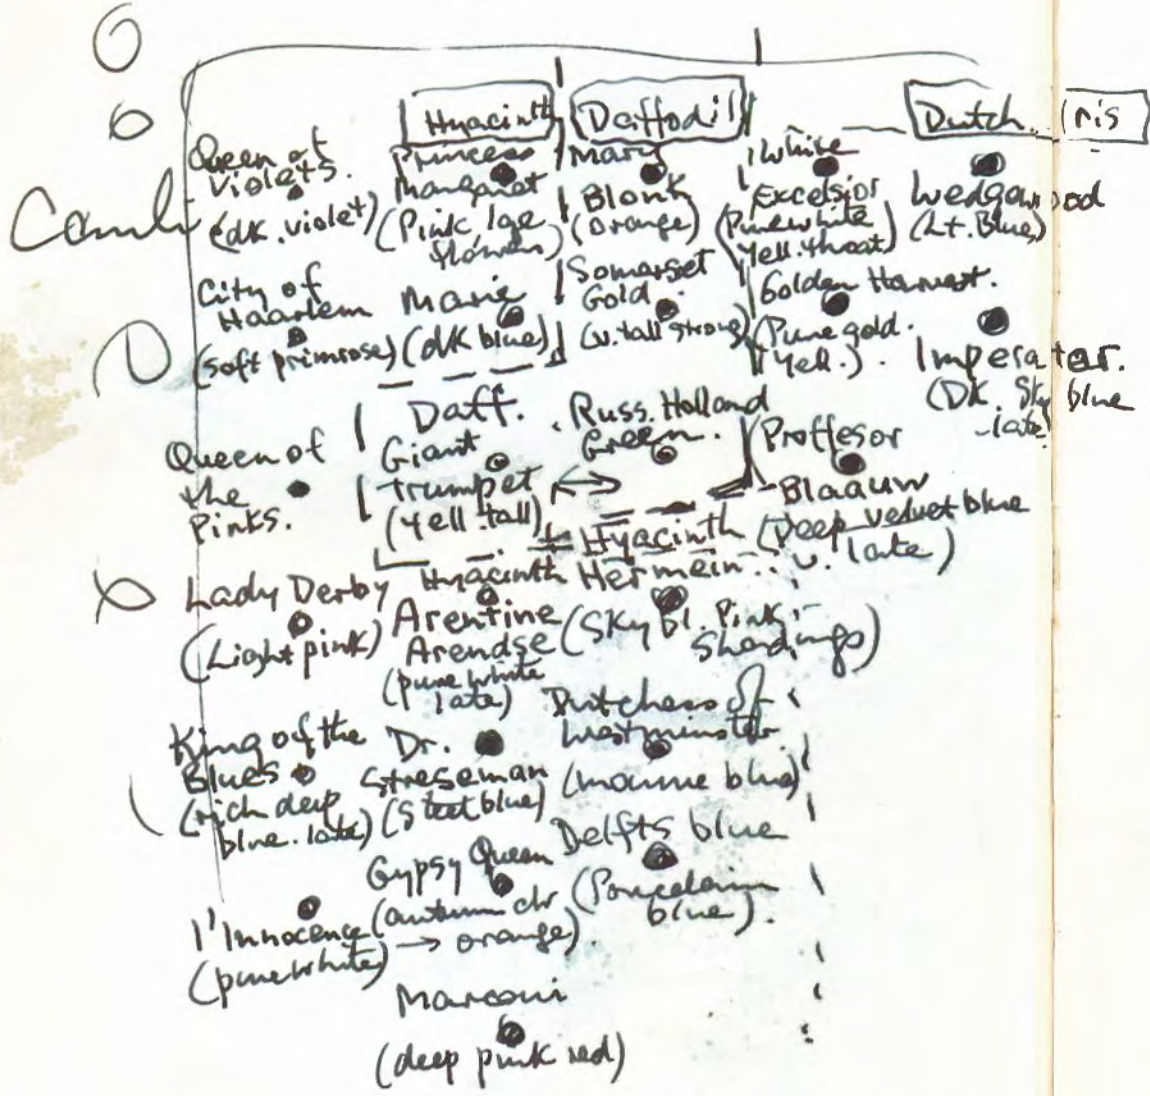 Hyacinth
Daffodil
Dutch Iris
Queen of
Violets.
(dk. violet)
City of
Haarlem
(soft primrose)
Queen of
the
Pinks.
Lady Derby
(Light pink)
King of the
Blues
(rich deep
blue. late)
l'Innocence
(pure white)
Princess
Margaret
(Pink lge
flowers)
Marie
(dk blue)
Daff.
Giant
Trumpet
(Yell. tall)
Hyacinth
Arentine
Arendse
(pure white
late)
Dr.
Streseman
(Steel blue)
Gypsy Queen
(autumn clr
→ orange).
Marconi
(deep pink red)
Mary
Blonk
(orange)
Somerset
Gold.
(v. tall strong)
Russ. Holland
Green.
Hyacinth
Hermein
(Sky bl. Pink
Shadings)
Dutchess of
Westminster
(mauve blue)
Delfts blue
(Porcelain
blue).
White
Excelsior
(Pure white
Yell. throat)
Golden Harvest.
(Pure gold.
Yell.).
Proffesor
Blaauw
(Deep velvet blue
v. late)
Wedgewood
(Lt. Blue)
Imperator.
(DK. Sky blue
-late)